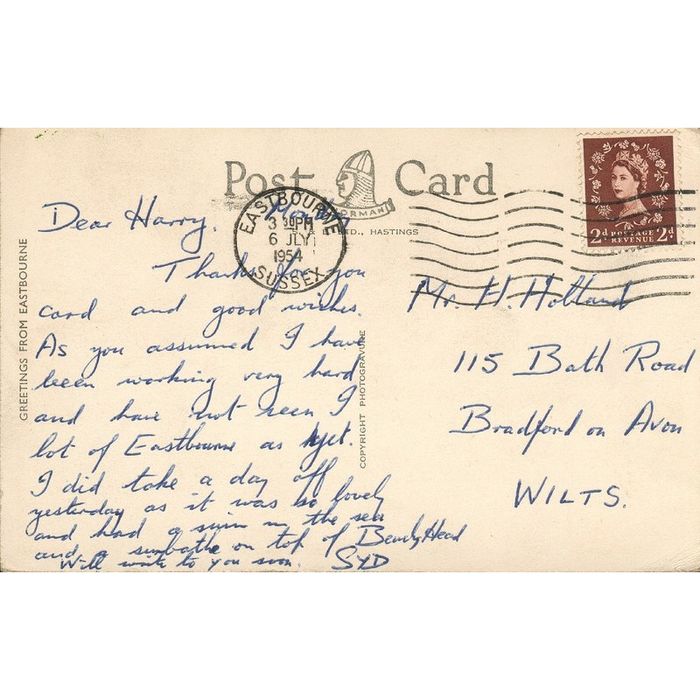 GREETINGS FROM EASTBOURNE
Post Card
NORMAN
LTD., HASTINGS
COPYRIGHT PHOTOGRAVURE
EASTBOURNE
3 30PM
6 JLY
1954
SUSSEX
2d POSTAGE REVENUE 2d
Dear Harry,
Thanks for you
card and good wishes.
As you assumed I have
been working very hard
and have not seen
lot of Eastbourne as yet.
I did take a day off
yesterday as it was so lovely
and had a swim in the sea
and a sunbathe on top of Beachy Head
Will write to you soon. SYD
Mr. H. Holland
115 Bath Road
Bradford on Avon
WILTS.